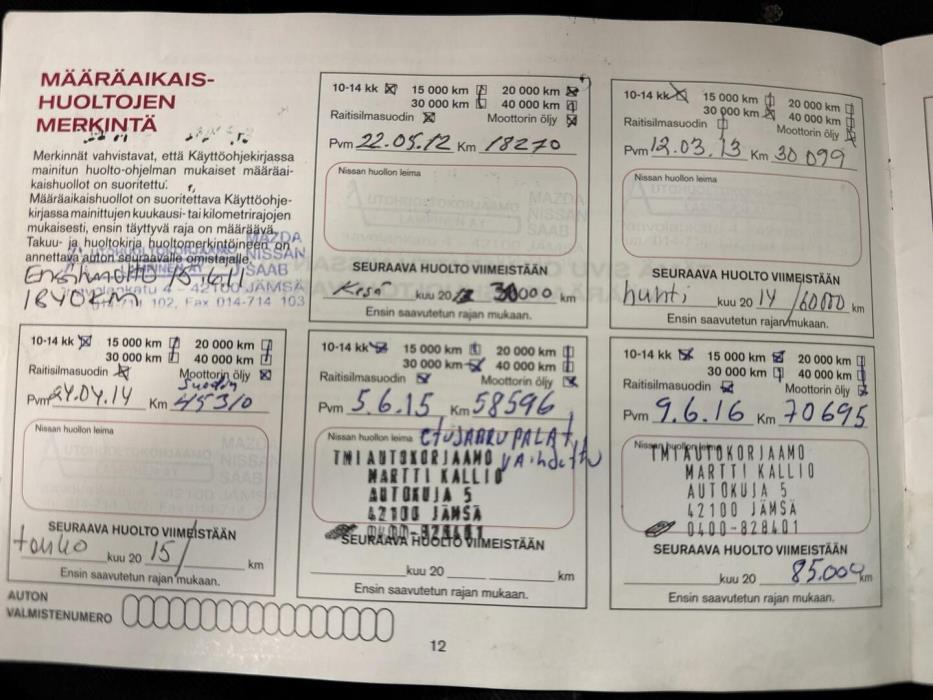 MÄÄRÄAIKAIS-
HUOLTOJEN
MERKINTÄ
Merkinnät vahvistavat, että Käyttöohjekirjassa
mainitun huolto-ohjelman mukaiset määräai-
kaishuollot on suoritettu.
Määräaikaishuollot on suoritettava Käyttöohje-
kirjassa mainittujen kuukausi- tai kilometrirajojen
mukaisesti, ensin täyttyvä raja on määräävä.
Takuu- ja huoltokirja huoltomerkintöineen on
annettava auton seuraavalle omistajalle.
MAZDA
NISSAN
SAAB
42100 JÄMSÄ
102, Fax 014-714 103
1840 KM
10-14 kk 15 000 km 20 000 km
30 000 km 40 000 km
Raitisilmasuodin Moottorin öljy
Pvm 22.05.12 Km 18270
Nissan huollon leima
SEURAAVA HUOLTO VIIMEISTÄÄN
Kesä kuu 20 30000 km
Ensin saavutetun rajan mukaan.
10-14 kk 15 000 km 20 000 km
30 000 km 40 000 km
Raitisilmasuodin Moottorin öljy
Pvm 12.03.13 Km 30 099
Nissan huollon leima
SEURAAVA HUOLTO VIIMEISTÄÄN
huhti kuu 20 14 / 60000 km
Ensin saavutetun rajan mukaan.
10-14 kk 15 000 km 20 000 km
30 000 km 40 000 km
Raitisilmasuodin Moottorin öljy
Suodin
Pvm 24.04.14 Km 45310
Nissan huollon leima
SEURAAVA HUOLTO VIIMEISTÄÄN
touko kuu 20 15 / km
Ensin saavutetun rajan mukaan.
10-14 kk 15 000 km 20 000 km
30 000 km 40 000 km
Raitisilmasuodin Moottorin öljy
Pvm 5.6.15 Km 58596
Nissan huollon leima ETUJARRUPALAT
VAihdettu
TMI AUTOKORJAAMO
MARTTI KALLIO
AUTOKUJA 5
42100 JÄMSÄ
0400-828401
SEURAAVA HUOLTO VIIMEISTÄÄN
kuu 20 km
Ensin saavutetun rajan mukaan.
10-14 kk 15 000 km 20 000 km
30 000 km 40 000 km
Raitisilmasuodin Moottorin öljy
Pvm 9.6.16 Km 70695
Nissan huollon leima
TMI AUTOKORJAAMO
MARTTI KALLIO
AUTOKUJA 5
42100 JÄMSÄ
0400-828401
SEURAAVA HUOLTO VIIMEISTÄÄN
kuu 20 85.000 km
Ensin saavutetun rajan mukaan.
AUTON
VALMISTENUMERO
12